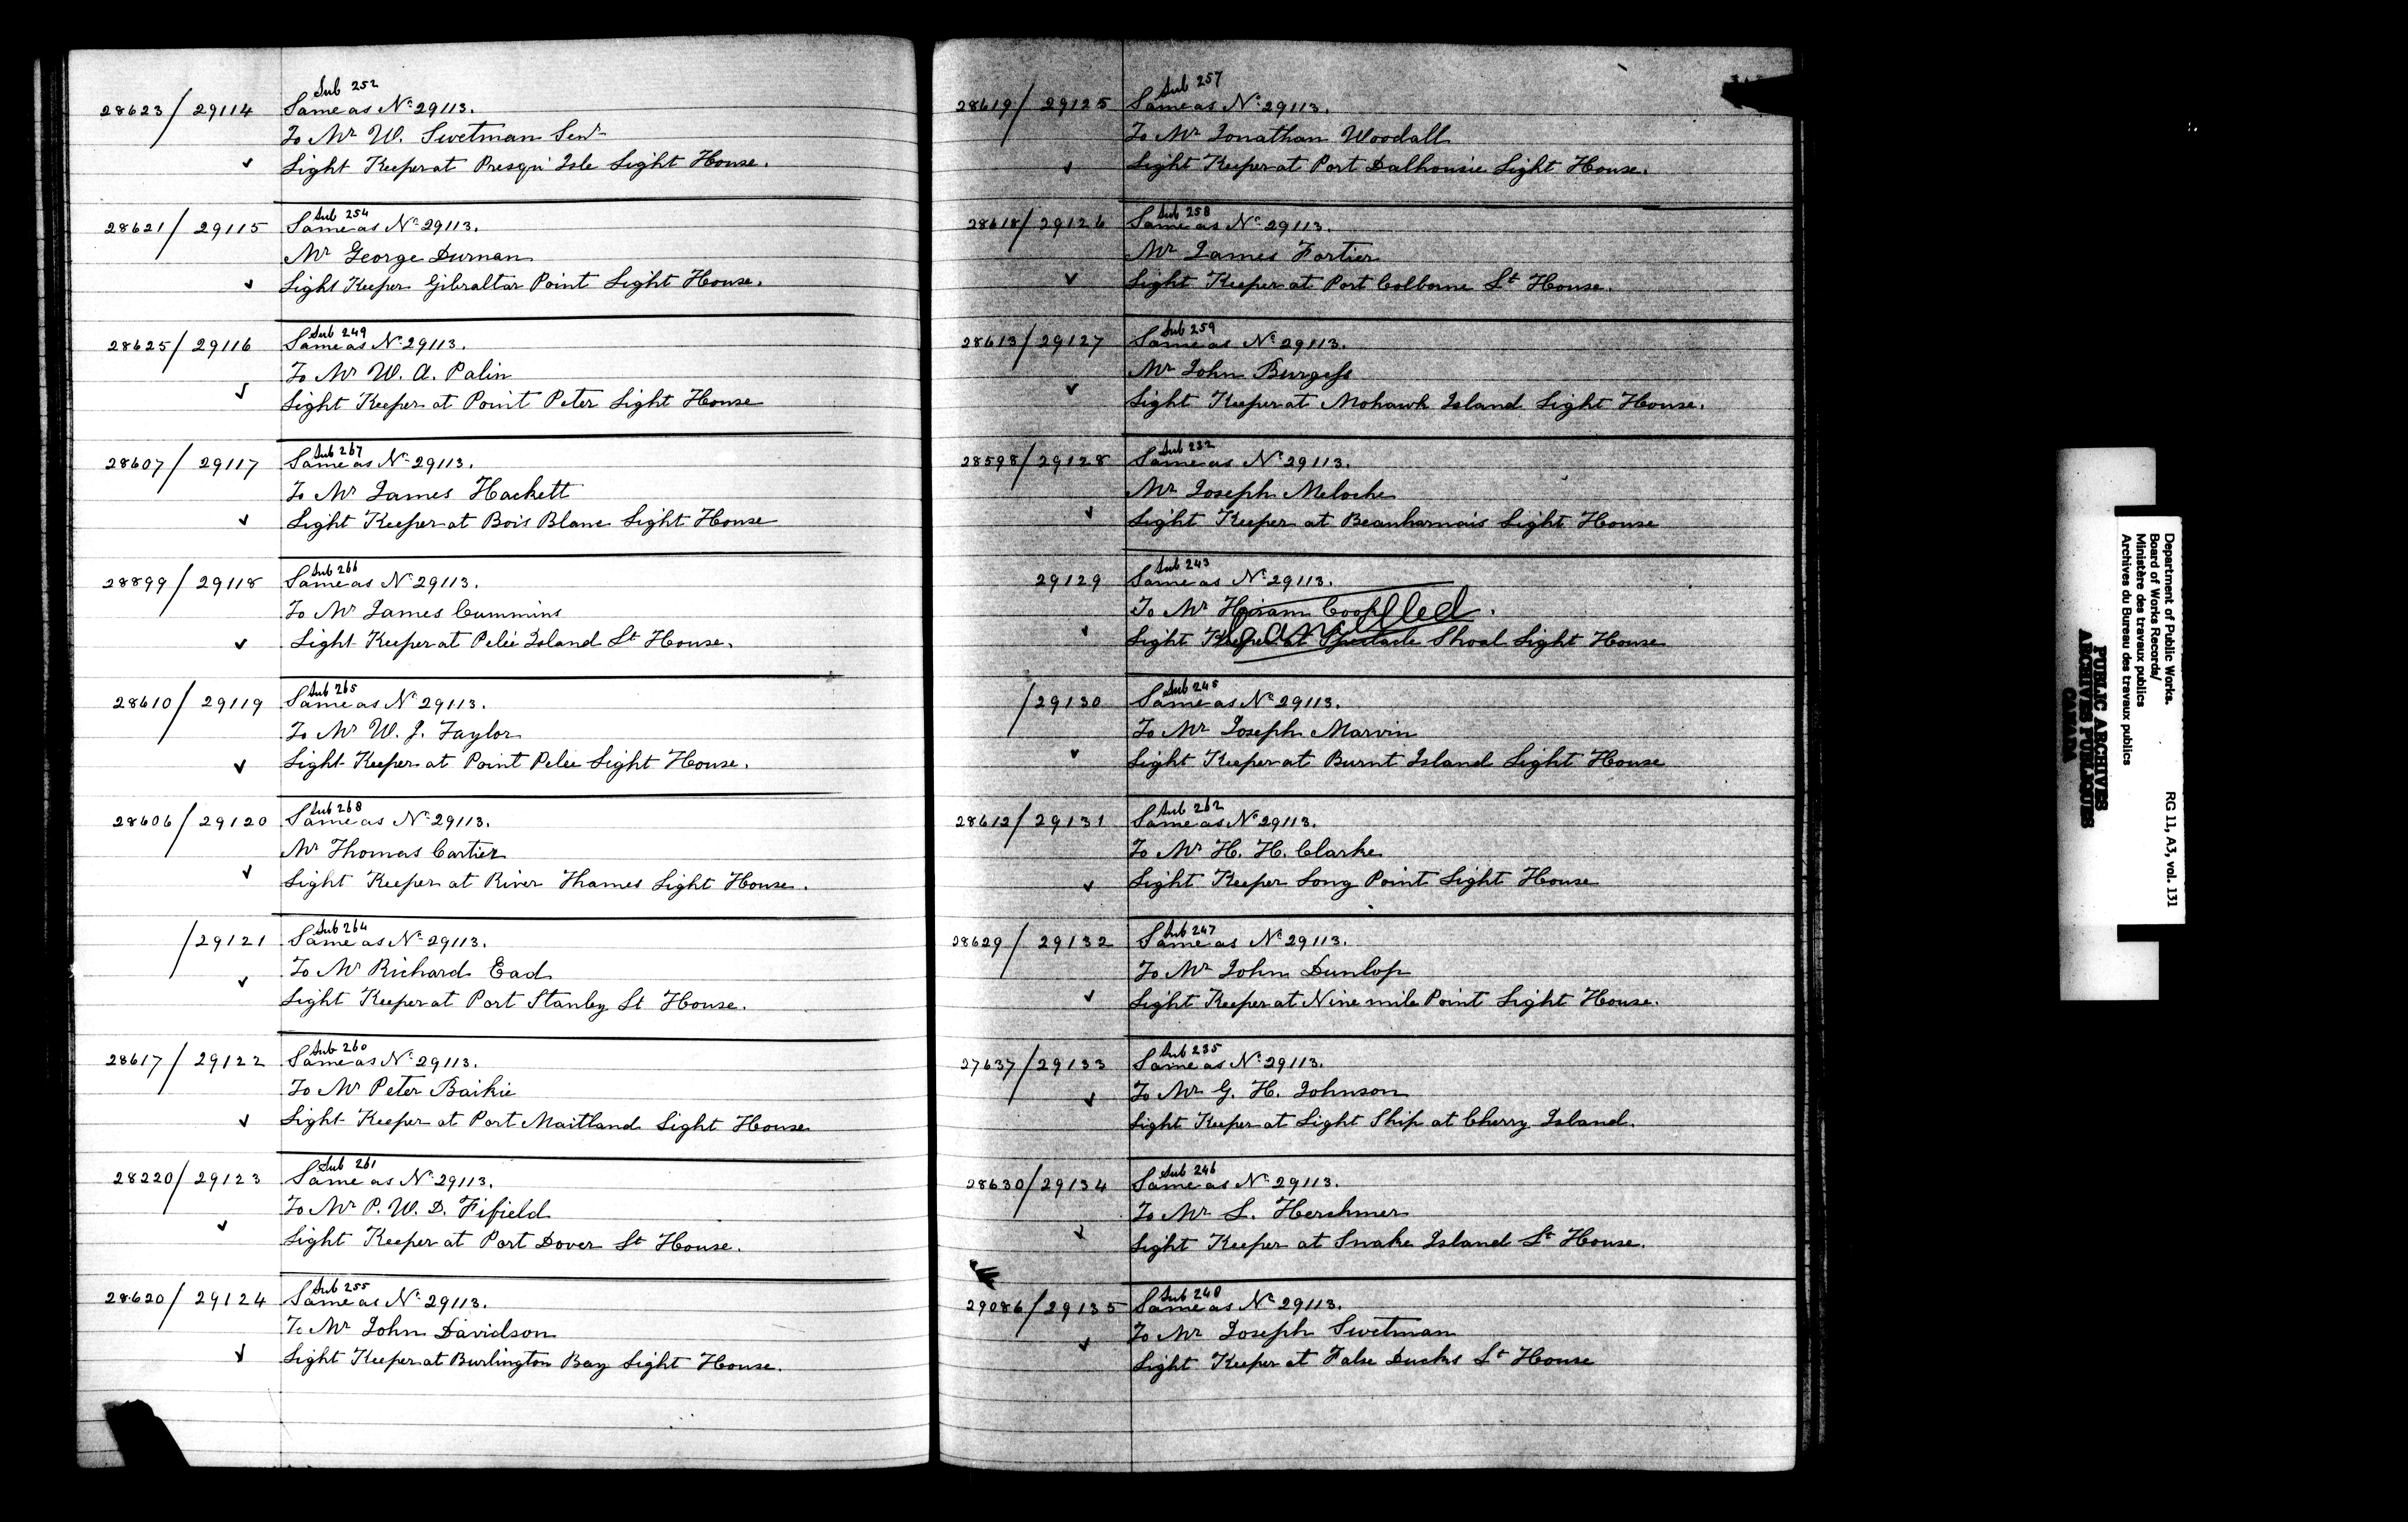 Sub 252
28623 / 29114 Same as No 29113.
To Mr W. Swetman Senr
✓ Light Keeper at Presqu' Isle Light House.
Sub 254
28621 / 29115 Same as No 29113.
Mr George Durnan
✓ Light Keeper Gibraltar Point Light House.
Sub 249
28625 / 29116 Same as No 29113.
To Mr W. A. Palin
✓ Light Keeper at Point Peter Light House
Sub 267
28607 / 29117 Same as No 29113.
To Mr James Hackett
✓ Light Keeper at Bois Blanc Light House
Sub 266
28899 / 29118 Same as No 29113.
To Mr James Cummins
✓ Light Keeper at Pelée Island Lt House.
Sub 265
28610 / 29119 Same as No 29113.
To Mr W. J. Taylor
✓ Light Keeper at Point Pelee Light House.
Sub 268
28606 / 29120 Same as No 29113.
Mr Thomas Cartier
✓ Light Keeper at River Thames Light House.
Sub 264
/ 29121 Same as No 29113.
To Mr Richard Ead
✓ Light Keeper at Port Stanley Lt House.
Sub 260
28617 / 29122 Same as No 29113.
To Mr Peter Baikie
✓ Light Keeper at Port Maitland Light House
Sub 261
28220 / 29123 Same as No 29113.
To Mr P. W. D. Fifield
✓ Light Keeper at Port Dover Lt House.
Sub 255
28620 / 29124 Same as No 29113.
To Mr John Davidson
✓ Light Keeper at Burlington Bay Light House.
Sub 257
28619 / 29125 Same as No 29113.
To Mr Jonathan Woodall
✓ Light Keeper at Port Dalhousie Light House.
Sub 258
28618 / 29126 Same as No 29113.
Mr James Fortier
✓ Light Keeper at Port Colborne Lt House.
Sub 259
28613 / 29127 Same as No 29113.
Mr John Burgess
✓ Light Keeper at Mohawk Island Light House.
Sub 232
28598 / 29128 Same as No 29113.
Mr Joseph Meloche
✓ Light Keeper at Beauharnais Light House
Sub 243
29129 Same as No 29113.
To Mr Hiram Cook
Cancelled.
✓ Light Keeper at Spectacle Shoal Light House
Sub 245
/ 29130 Same as No 29113.
To Mr Joseph Marvin
✓ Light Keeper at Burnt Island Light House
Sub 262
28612 / 29131 Same as No 29113.
To Mr H. H. Clarke
✓ Light Keeper Long Point Light House
Sub 247
28629 / 29132 Same as No 29113.
To Mr John Dunlop
✓ Light Keeper at Nine mile Point Light House.
Sub 235
27637 / 29133 Same as No 29113.
✓ To Mr G. H. Johnson
Light Keeper at Light Ship at Cherry Island.
Sub 246
28630 / 29134 Same as No 29113.
To Mr L. Herchmer
✓ Light Keeper at Snake Island Lt House.
Sub 240
29086 / 29135 Same as No 29113.
✓ To Mr Joseph Swetman
Light Keeper at False Ducks Lt House
Department of Public Works.
Board of Works Records/
Ministère des travaux publics
Archives du Bureau des travaux publics
RG 11, A3, vol. 131
PUBLIC ARCHIVES
ARCHIVES PUBLIQUES
CANADA